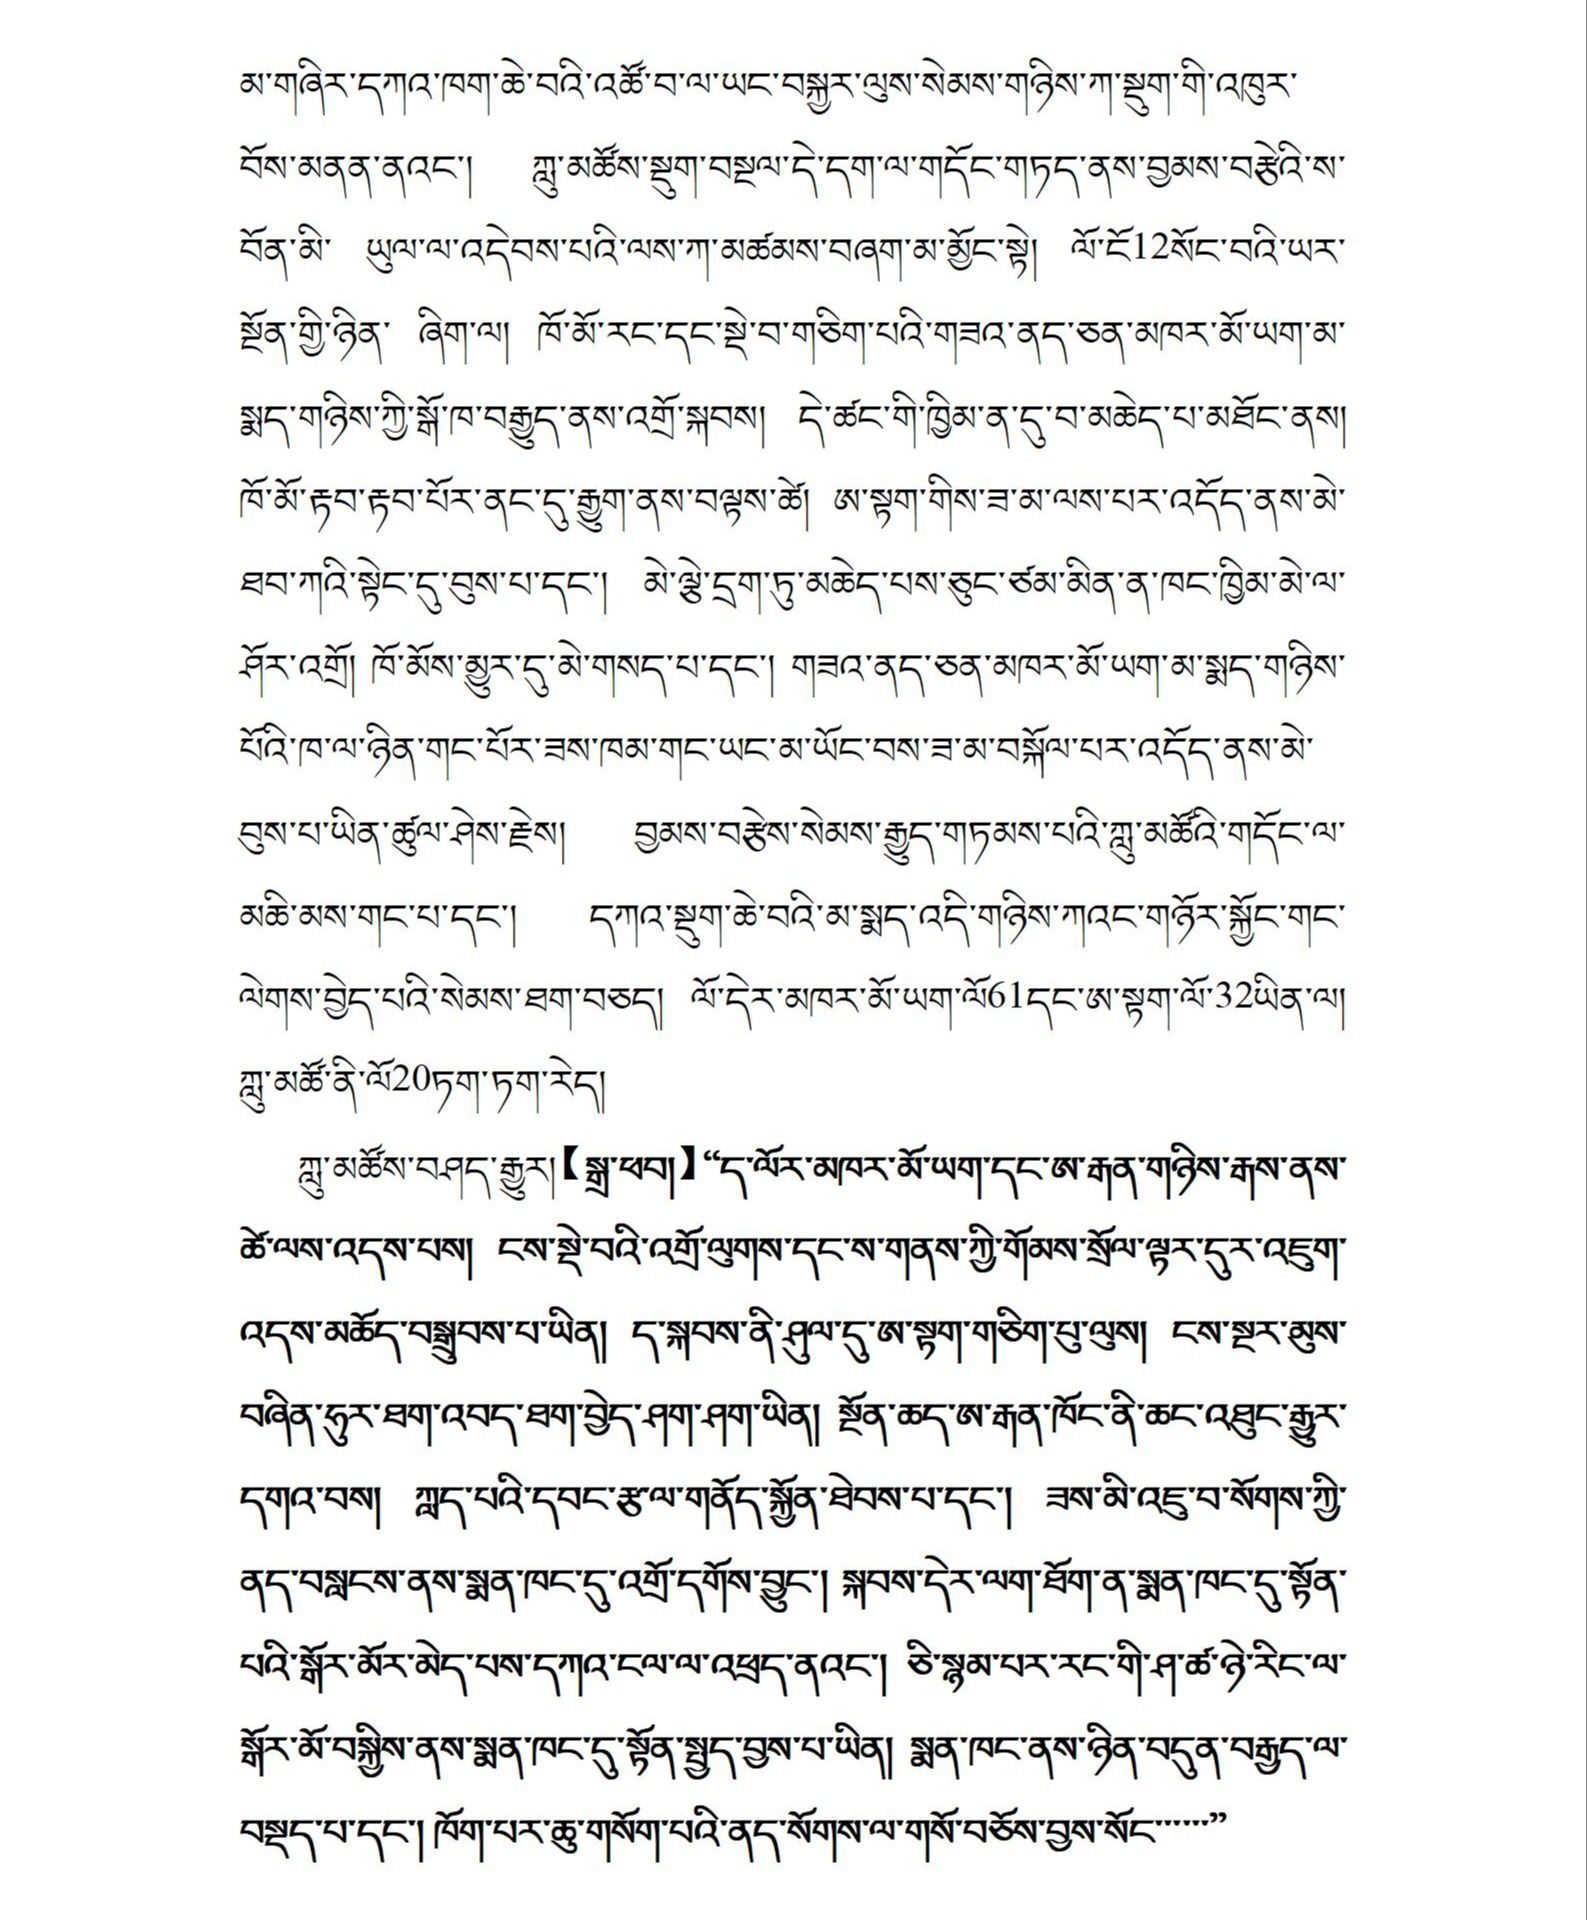 མ་གཞིར་དཀའ་ཁག་ཆེ་བའི་འཚོ་བ་ལ་ཡང་བསྐྱར་ལུས་སེམས་གཉིས་ཀ་སྡུག་གི་འཁུར་
པོས་མནན་ནའང་། ཀླུ་མཚོས་སྡུག་བསྔལ་དེ་དག་ལ་གདོང་གཏད་ནས་བྱམས་བརྩེའི་ས་
བོན་མི་ ཡུལ་ལ་འདེབས་པའི་ལས་ཀ་མཚམས་བཞག་མ་མྱོང་སྟེ། ལོ་ངོ12སོང་བའི་ཡར་
སྔོན་གྱི་ཉིན་ ཞིག་ལ། ཁོ་མོ་རང་དང་སྡེ་བ་གཅིག་པའི་གཟའ་ནད་ཅན་མཁར་མོ་ཡག་མ་
སྨད་གཉིས་ཀྱི་སྒོ་ཁ་བརྒྱུད་ནས་འགྲོ་སྐབས། དེ་ཚང་གི་ཁྱིམ་ན་དུ་བ་མཆེད་པ་མཐོང་ནས།
ཁོ་མོ་རྟབ་རྟབ་པོར་ནང་དུ་རྒྱུག་ནས་བལྟས་ཚེ། ཨ་སྟག་གིས་ཟ་མ་ལས་པར་འདོད་ནས་མེ་
ཐབ་ཀའི་སྟེང་དུ་བུས་པ་དང་། མེ་ལྕེ་དྲག་ཏུ་མཆེད་པས་ཅུང་ཙམ་མིན་ན་ཁང་ཁྱིམ་མེ་ལ་
ཤོར་འགྲོ། ཁོ་མོས་མྱུར་དུ་མེ་གསད་པ་དང་། གཟའ་ནད་ཅན་མཁར་མོ་ཡག་མ་སྨད་གཉིས་
པོའི་ཁ་ལ་ཉིན་གང་པོར་ཟས་ཁམ་གང་ཡང་མ་ཡོང་བས་ཟ་མ་བསྐོལ་པར་འདོད་ནས་མེ་
བུས་པ་ཡིན་ཚུལ་ཤེས་རྗེས། བྱམས་བརྩེས་སེམས་རྒྱུད་གཏམས་པའི་ཀླུ་མཚོའི་གདོང་ལ་
མཆི་མས་གང་པ་དང་། དཀའ་སྡུག་ཆེ་བའི་མ་སྨད་འདི་གཉིས་ཀའང་གཉོར་སྐྱོང་གང་
ལེགས་བྱེད་པའི་སེམས་ཐག་བཅད། ལོ་དེར་མཁར་མོ་ཡག་ལོ61དང་ཨ་སྟག་ལོ་32ཡིན་ལ།
ཀླུ་མཚོ་ནི་ལོ20ཏག་ཏག་རེད།
ཀླུ་མཚོས་བཤད་རྒྱུར།【སྒྲ་ཕབ།】“ད་ལོར་མཁར་མོ་ཡག་དང་ཨ་རྒན་གཉིས་རྒས་ནས་
ཚེ་ལས་འདས་པས། ངས་སྡེ་བའི་འགྲོ་ལུགས་དང་ས་གནས་ཀྱི་གོམས་སྲོལ་ལྟར་དུར་འཇུག་
འདས་མཆོད་བསྒྲུབས་པ་ཡིན། ད་སྐབས་ནི་ཤུལ་དུ་ཨ་སྟག་གཅིག་པུ་ལུས། ངས་སྔར་མུས་
བཞིན་ཧུར་ཐག་འབད་ཐག་བྱེད་ཤག་ཤག་ཡིན། སྔོན་ཆད་ཨ་རྒན་ཁོང་ནི་ཆང་འཐུང་རྒྱུར་
དགའ་བས། ཀླད་པའི་དབང་རྩལ་གནོད་སྐྱོན་ཐེབས་པ་དང་། ཟས་མི་འཇུ་བ་སོགས་ཀྱི་
ནད་བསླངས་ནས་སྨན་ཁང་དུ་འགྲོ་དགོས་བྱུང་། སྐབས་དེར་ལག་ཐོག་ན་སྨན་ཁང་དུ་སྟོན་
པའི་སྒོར་མོར་མེད་པས་དཀའ་ངལ་ལ་འཕྲད་ནའང་། ཅི་སྙམ་པར་རང་གི་ཤ་ཚ་ཉེ་རིང་ལ་
སྒོར་མོ་བསྐྱིས་ནས་སྨན་ཁང་དུ་སྟོན་སྤྱད་བྱས་པ་ཡིན། སྨན་ཁང་ནས་ཉིན་བདུན་བརྒྱད་ལ་
བསྡད་པ་དང་། ཁོག་པར་ཆུ་གསོག་པའི་ནད་སོགས་ལ་གསོ་བཅོས་བྱས་སོང་……”